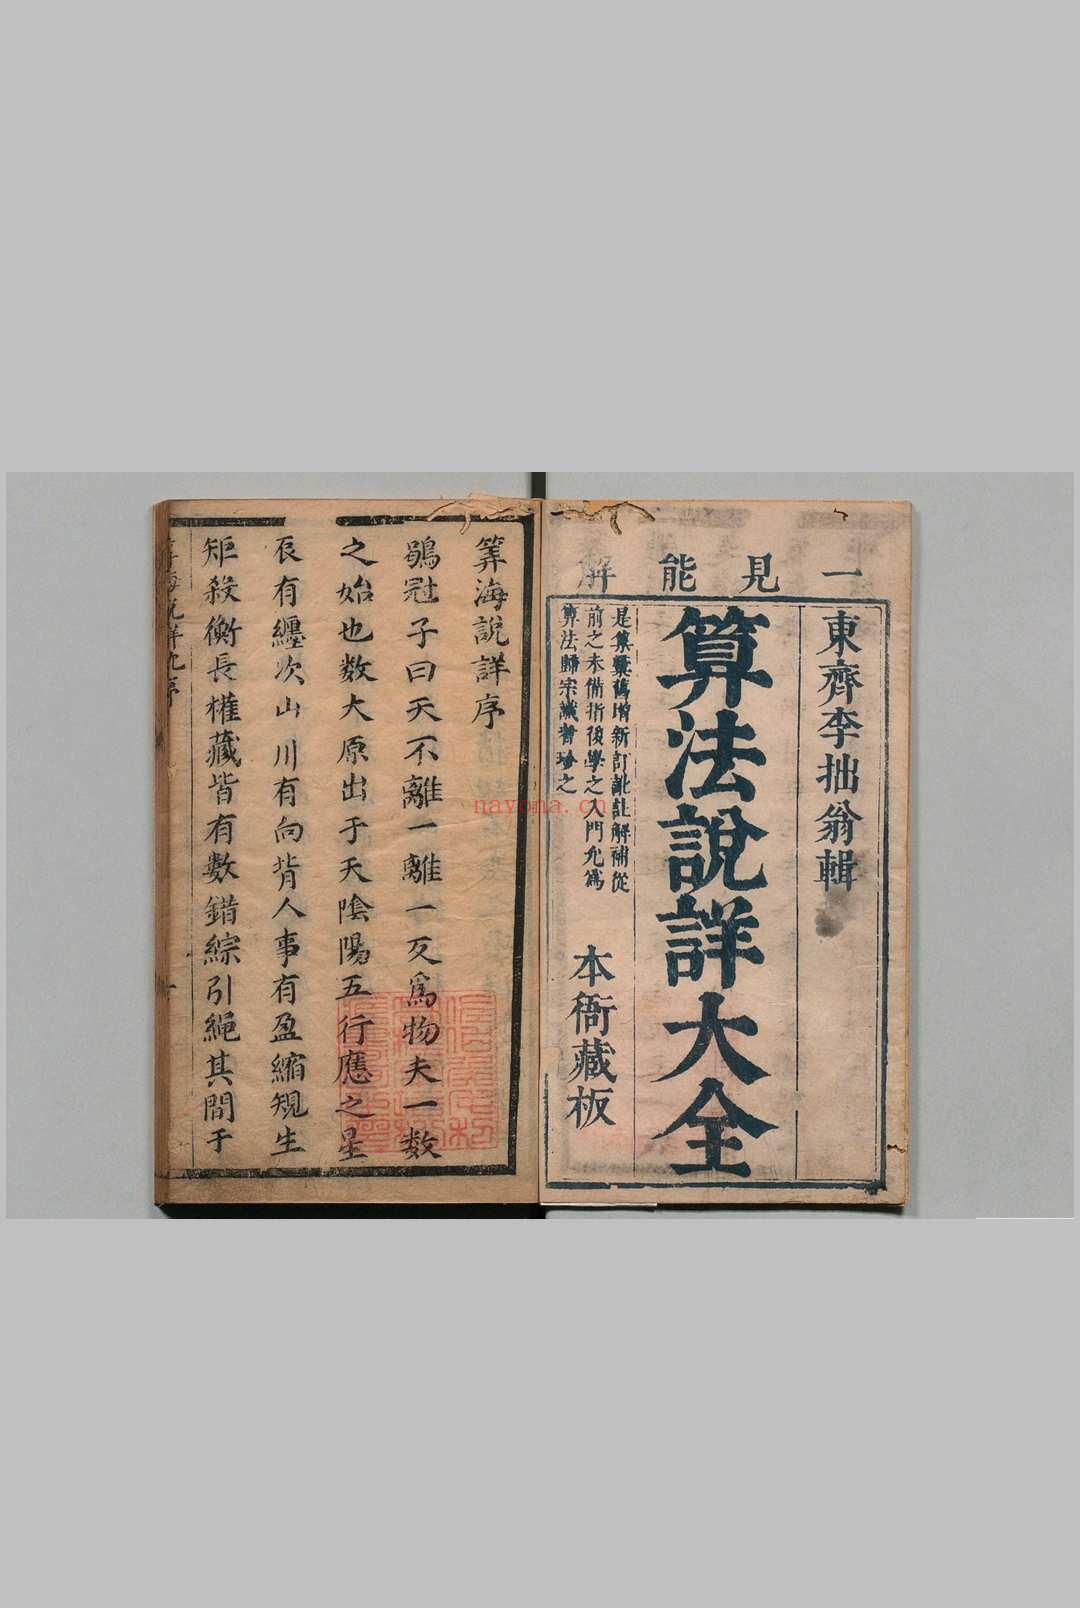 一見能解
東齊李拙翁輯
算法說詳大全
是集彙舊增新訂訛註解補從
前之未備指後學之入門允爲
算法歸宗識者珍之
本衙藏板
nayona.cn
筭海說詳序
鶡冠子曰天不離一離一反爲物夫一數
之始也数大原出于天陰陽五行應之星
辰有纏次山川有向背人事有盈縮規生
矩殺衡長權藏皆有數錯綜引繩其間于